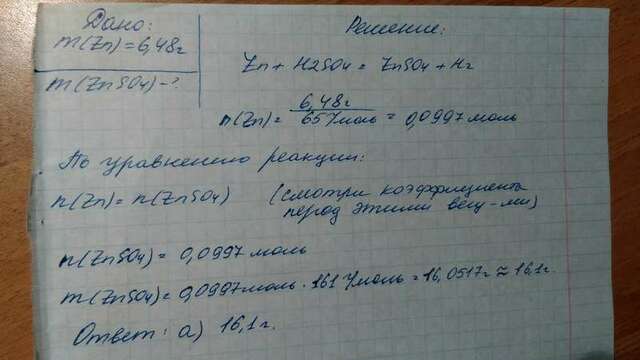 Дано:
m(Zn)=6,48г
m(ZnSO4)-?
Решение:
Zn + H2SO4 = ZnSO4 + H2
n(Zn)= 6,48г / 65 г/моль = 0,0997 моль
По уравнению реакции:
n(Zn)= n(ZnSO4) (смотри коэффициенты
перед этими вещ-ми)
n(ZnSO4)= 0,0997 моль
m(ZnSO4)=0,0997моль · 161 г/моль = 16,0517г ≈ 16,1г.
Ответ: а) 16,1г.